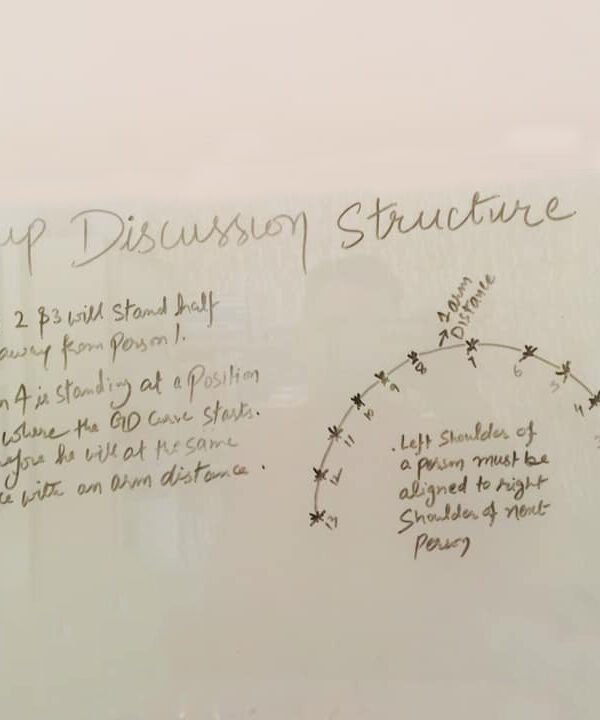 up Discussion Structure
2 & 3 will stand half
away from person 1.
n 4 is standing at a Position
where the GD curve starts.
efore he will at the same
ce with an arm distance.
1 arm
Distance
4
5
6
7
8
9
10
11
12
13
. Left Shoulder of
a person must be
aligned to right
Shoulder of next
Person